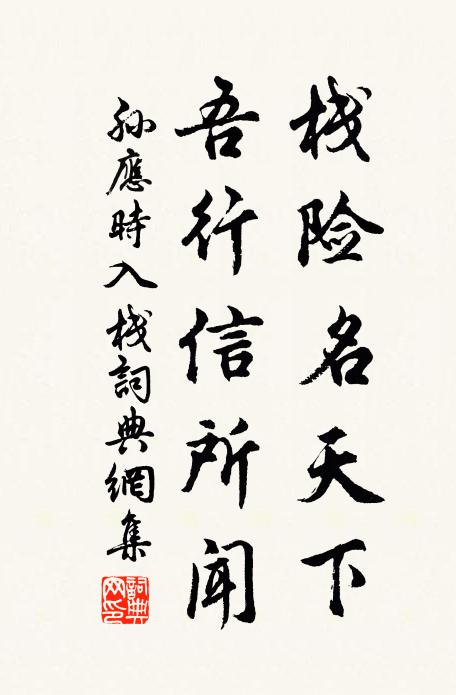 栈险名天下
吾行信所闻
孙應時入栈詞典網集
詞典网印